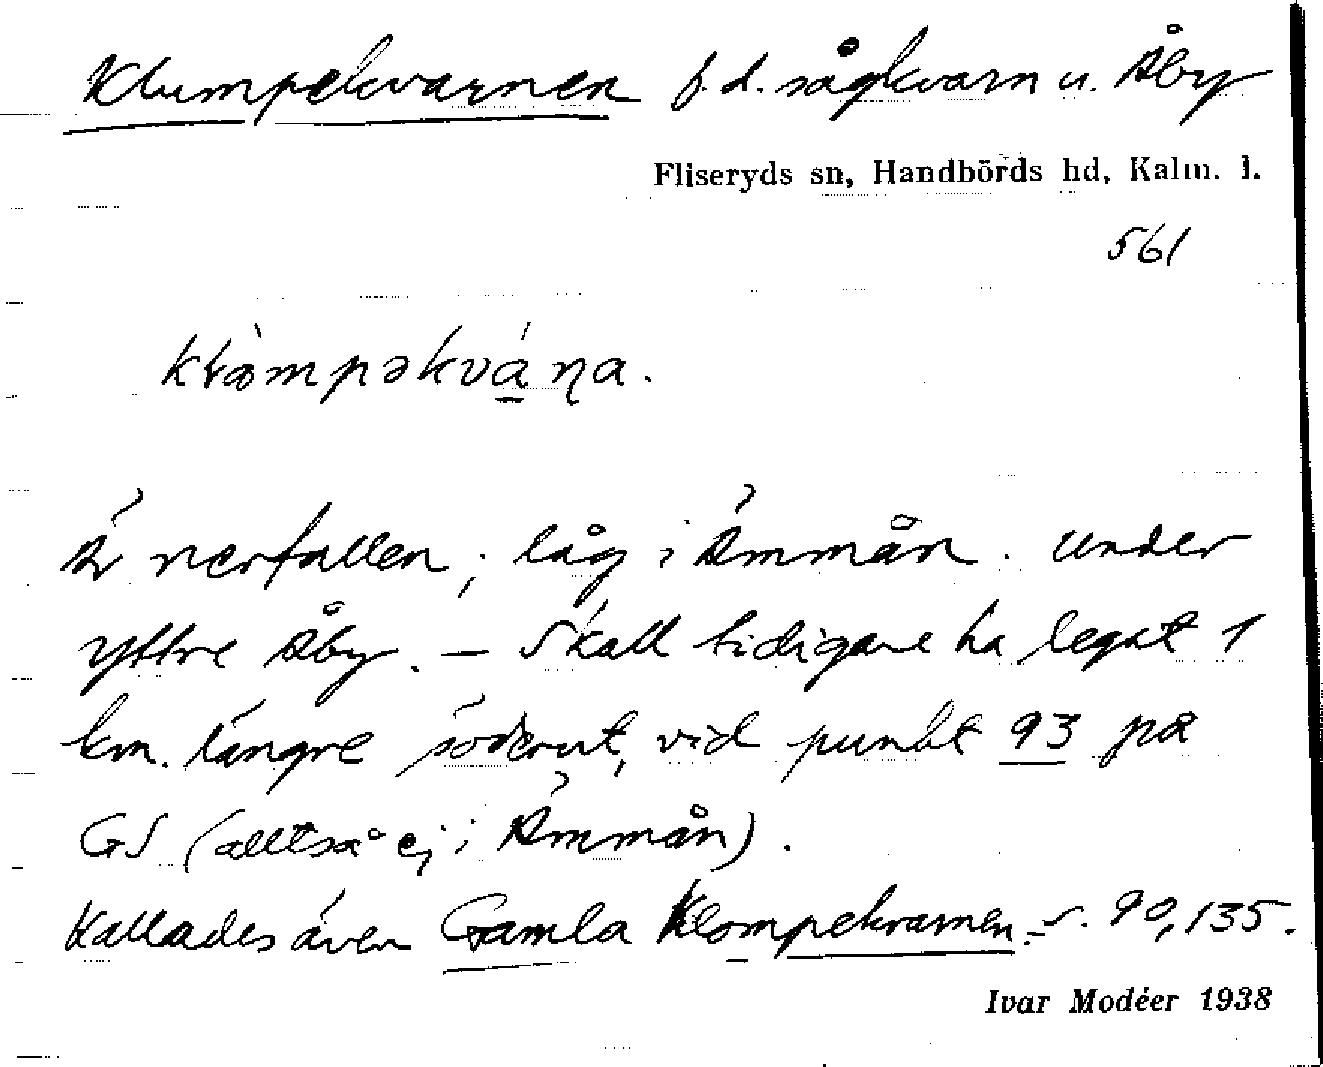 Klumpekvarnen f.d. sågkvarn u. Åby
Fliseryds sn, Handbörds hd, Kalm. l.
561
Är nerfallen; låg i Ämmån. under
yttre Åby. – Skall tidigare ha legat 1
km. längre söderut, vid punkt 93 på
GS (alltså ej i Ämmån).
Kallades även Gamla Klompekvarnen. – s. 90, 135.
Ivar Modéer 1938